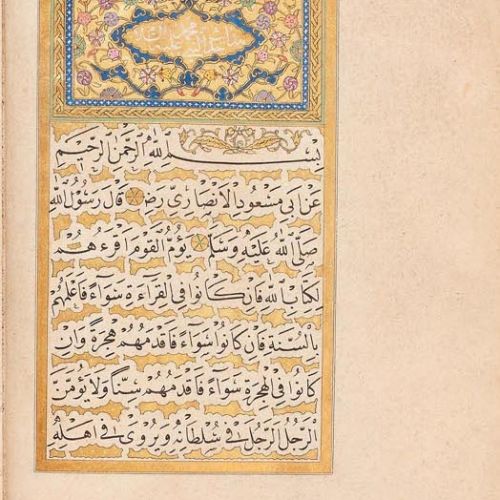 بسم الله الرحمن الرحيم
عن ابى مسعود الانصارى رض قال رسول الله
صلى الله عليه وسلم يؤم القوم اقرءهم
لكتاب الله فان كانوا فى القراءة سواء فاعلمهم
بالسنة فان كانوا سواء فاقدمهم هجرة وان
كانوا فى الهجرة سواء فاقدمهم سنا ولا يؤمن
الرجل الرجل فى سلطانه ويروى فى اهله